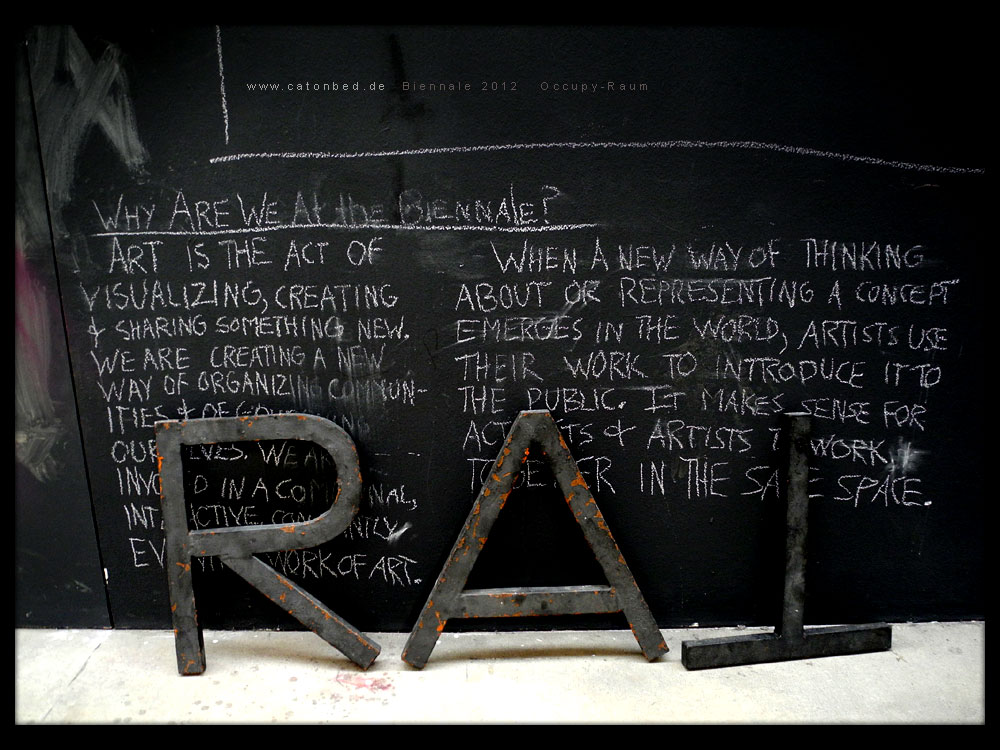 www.catonbed.de Biennale 2012 Occupy-Raum
WHY ARE WE At the BIENNALE?
ART IS THE ACT OF
VISUALIZING, CREATING
& SHARING SOMETHING NEW.
WE ARE CREATING A NEW
WAY OF ORGANIZING COMMUN-
ITIES & OF
WE
IN A
WORK OF ART.
WHEN A NEW WAY OF THINKING
ABOUT OR REPRESENTING A CONCEPT
EMERGES IN THE WORLD, ARTISTS USE
THEIR WORK TO INTRODUCE IT TO
THE PUBLIC. IT MAKES SENSE FOR
& ARTISTS TO WORK
TOGETHER IN THE SAME SPACE.
RAI